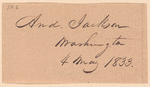 And. Jackson
Washington
4 May 1833.